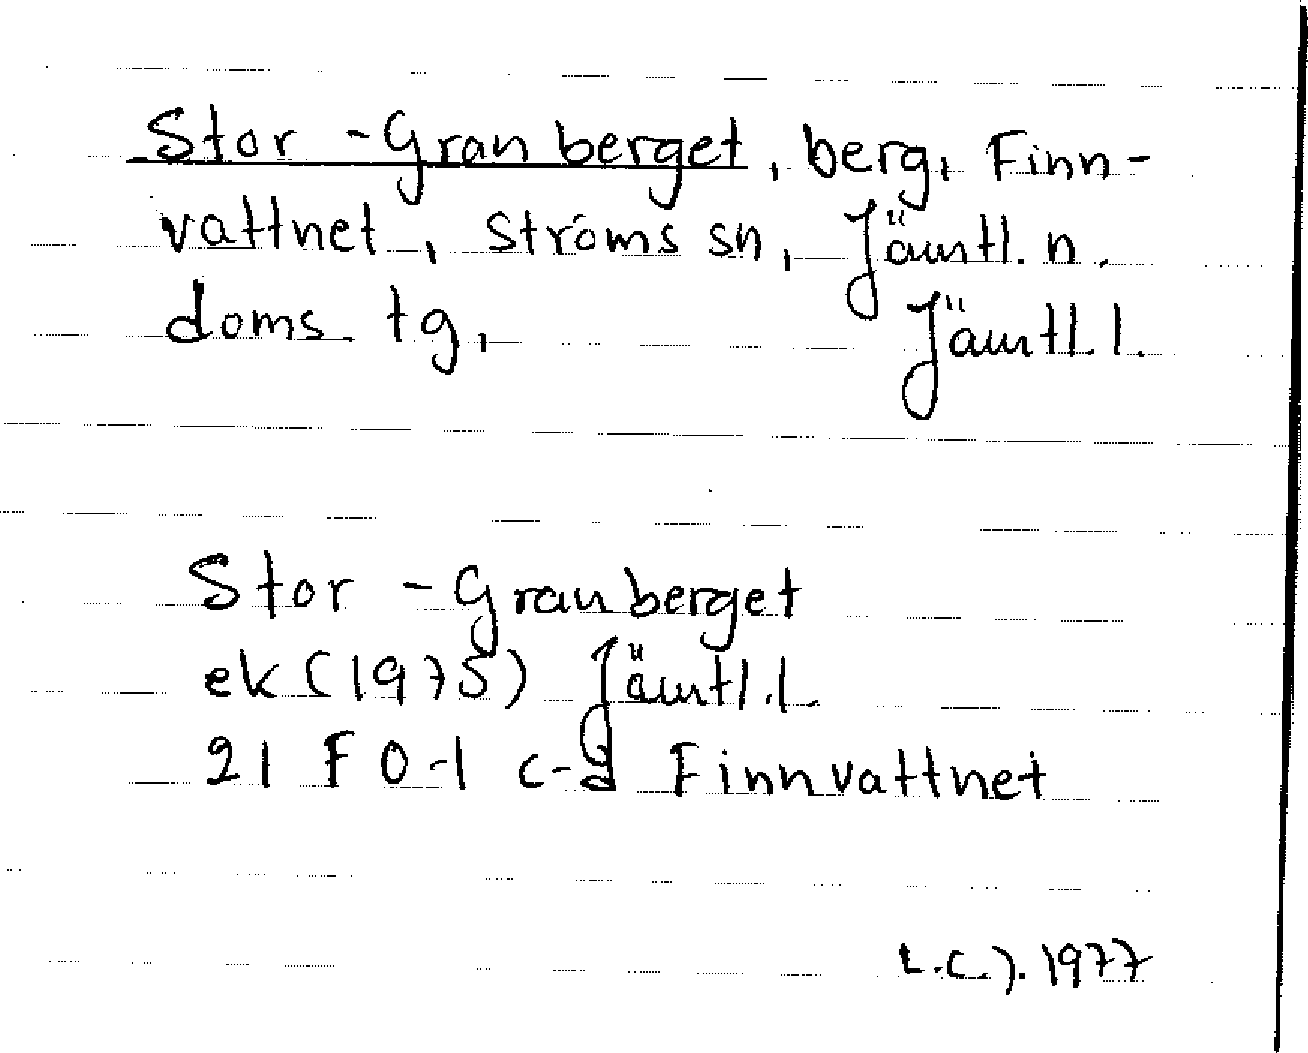 Stor-Granberget, berg, Finn-
vattnet, Ströms sn, Jämtl. n.
doms tg, Jämtl. l.
Stor-Granberget
ek (1975) Jämtl. l.
21 F 0-1 c-d Finnvattnet
L.C.J. 1977